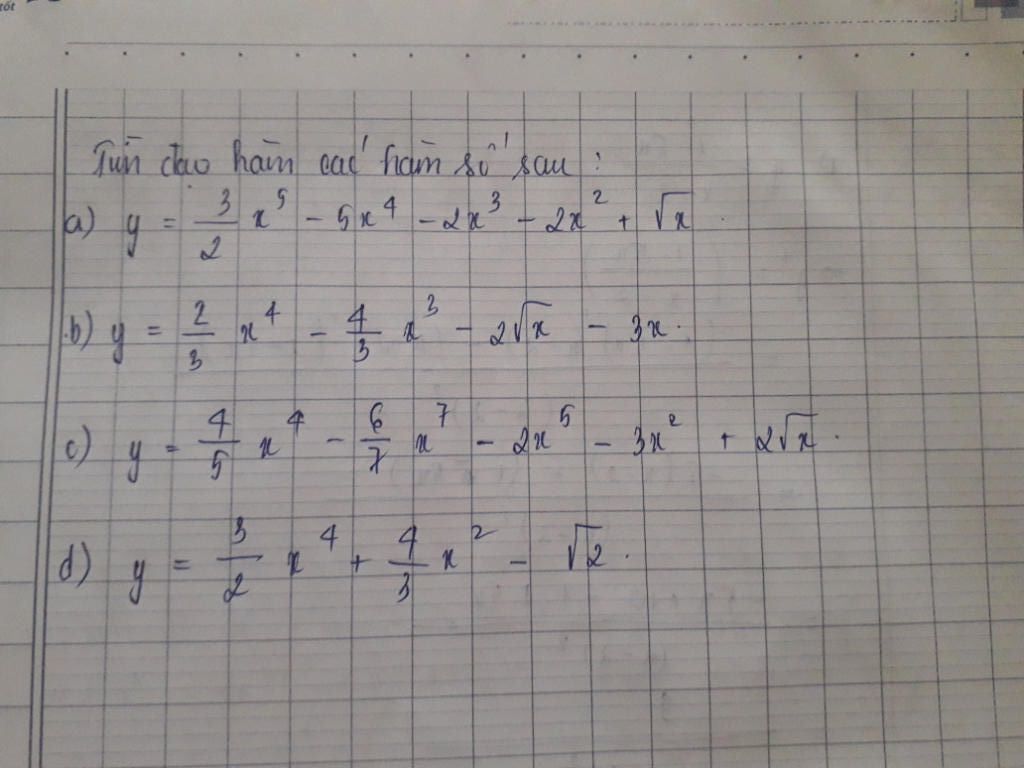 tốt
Tìm đạo hàm các hàm số sau :
a) y = 3/2 x⁵ - 5x⁴ - 2x³ - 2x² + √x .
b) y = 2/3 x⁴ - 4/3 x³ - 2√x - 3x .
c) y = 4/5 x⁴ - 6/7 x⁷ - 2x⁵ - 3x² + 2√x .
d) y = 3/2 x⁴ + 4/3 x² - √2 .